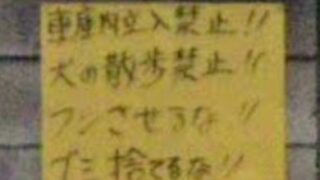 車庫内立入禁止!!
犬の散歩禁止!!
フンさせるな!!
ゴミ捨てるな!!